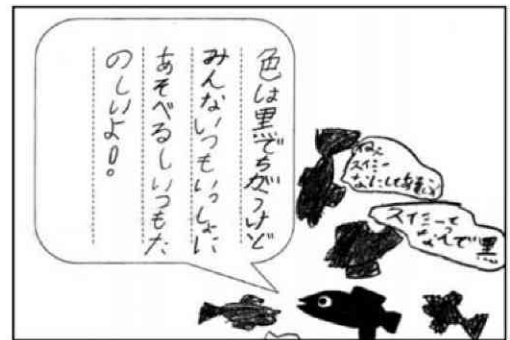 色は黒でちがうけど
みんないつもいっしょに
あそべるしいつもた
のしいよ！。
ねえ
スイミー
なにして
スイミーって
なんで黒